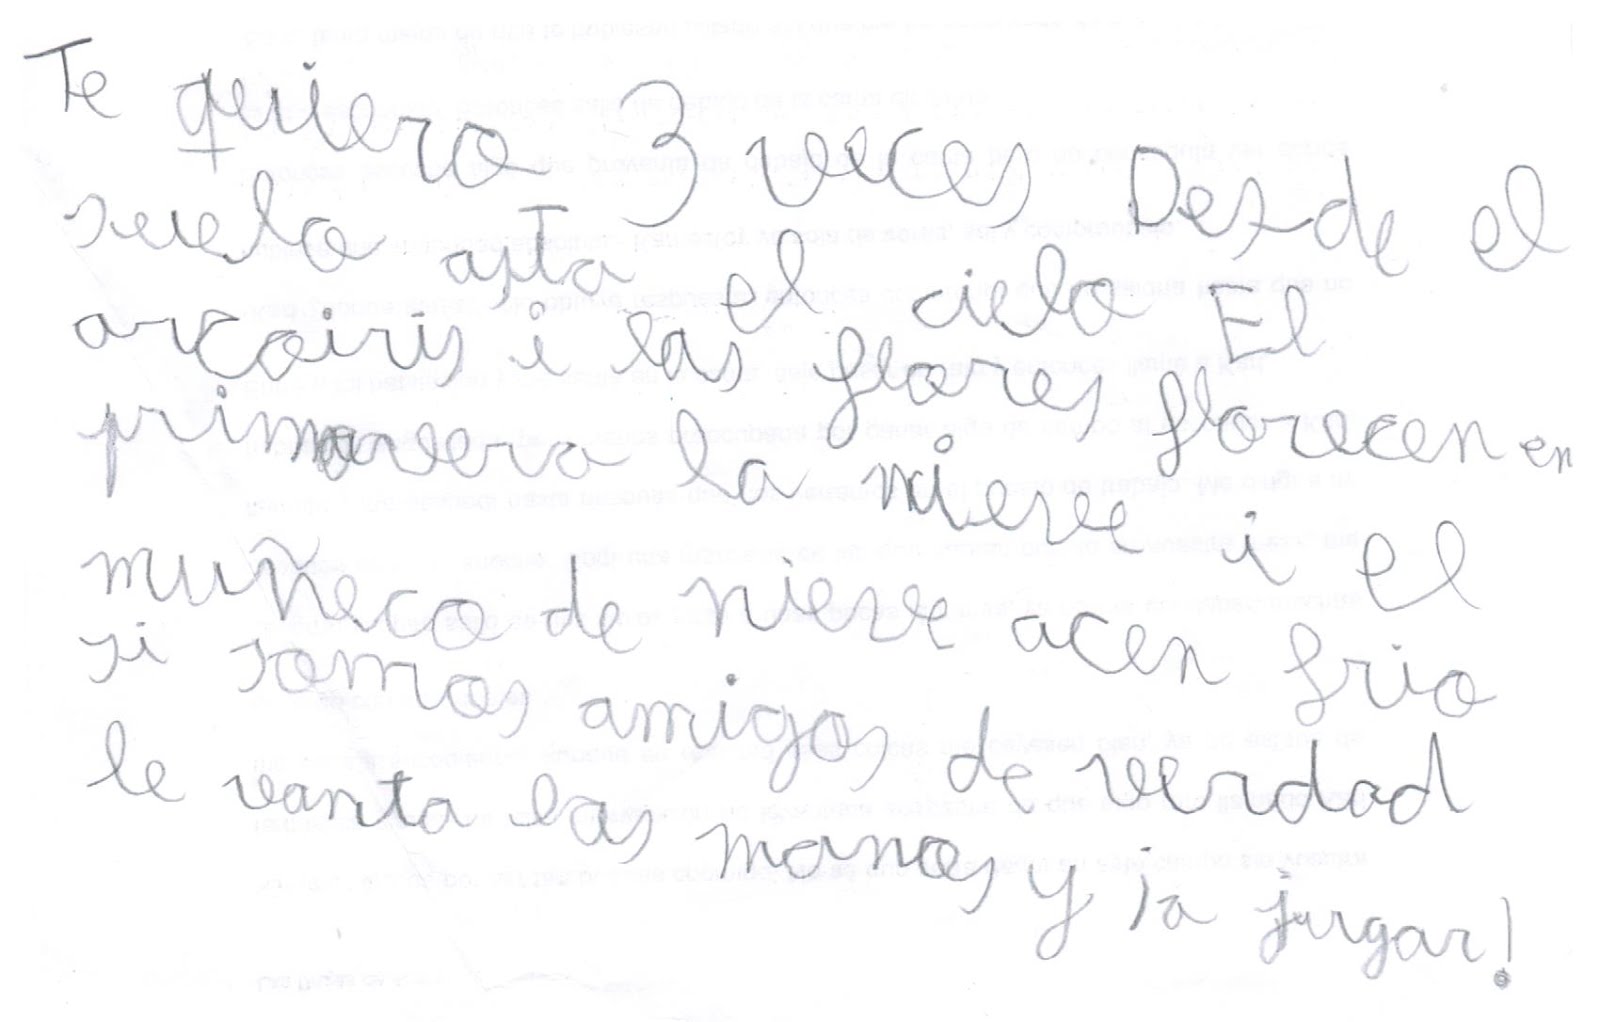 Te quiero 3 veces Desde el
suelo asta el cielo El
arcoiris i las flores florecen en
primavera la nieve i el
muñeco de nieve acen frio
si somos amigos de verdad
le vanta las manos y ia jurgar!